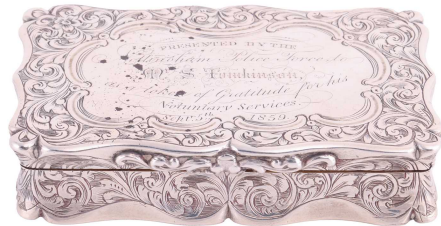 PRESENTED BY THE
Police Force to
W. S. Tomkinson,
as a token of Gratitude for his
Voluntary Services.
Sept. 5th 1859.